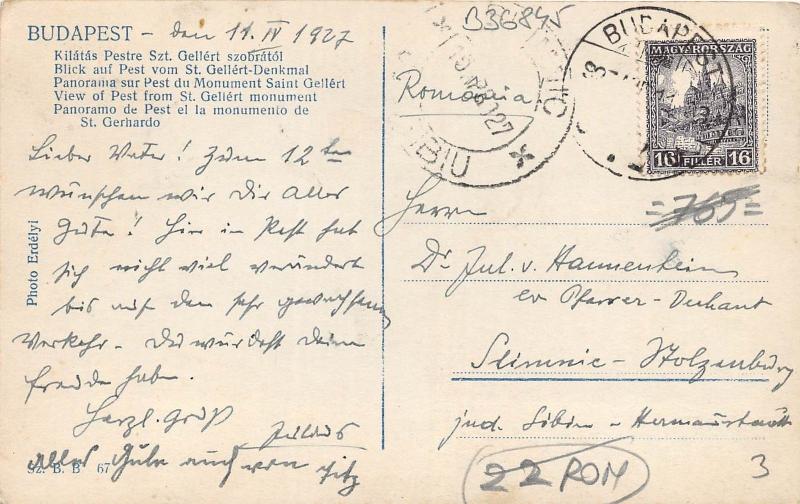 BUDAPEST - den 11. IV 1927
Kilátás Pestre Szt. Gellért szobrától
Blick auf Pest vom St. Gellért-Denkmal
Panorama sur Pest du Monument Saint Gellért
View of Pest from St. Gellért monument
Panoramo de Pest el la monumento de
St. Gerhardo
Lieber Vater! Zum 12ten
wünschen wir Dir alles
Gute! Hier in Pest hat
sich nicht viel verändert
bis auf den sehr gewachsenen
Verkehr. Du würdest Deine
Freude haben.
Herzl. Gruß
Julius
alles Gute auch von
Photo Erdélyi
Sz. B. B 67
B36845
SIBIU
27
BUDAPEST
MAGYARORSZÁG
16 FILLÉR 16
România
=765=
Herrn
Dr. Jul. v. Hannenheim
ev. Pfarrer-Dechant
Slimnic-Stolzenburg
jud. Sibiu-Hermannstadt
22 ROM
3